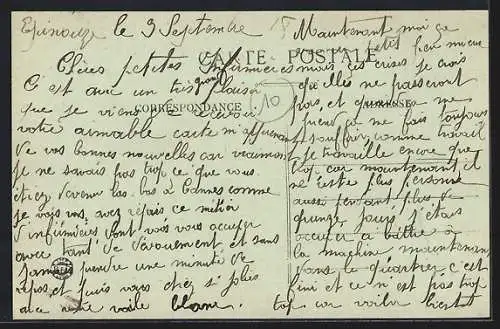 Epinouze le 3 Septembre
CARTE POSTALE
CORRESPONDANCE
Chères petites infirmières
C'est avec un très grand plaisir
que je viens de recevoir
votre aimable carte m'apprenant
de vos bonnes nouvelles car vraiment
je ne savais pas trop ce que vous
étiez devenues là bas à Cannes comme
je vois vous avez repris ce métier
d'infirmières dont vous vous occupez
avec tant de dévouement et sans
jamais prendre une minute de
repos et puis vous chez si plus
avec votre voile blanc.
18
10
Maintenant moi ça
va un petit peu mieux
mais ces crises je crois
qu'elles ne passeront
pas, et quand ça me
prend ça me fais toujours
souffrir, comme travail
je travaille encore que
trop car maintenant il
ne reste plus personne
aussi pendant plus de
quinze jours j'étais
occupé à battre à
la machine maintenant
dans le quartier c'est
fini et ce n'est pas trop
top car voilà bientôt